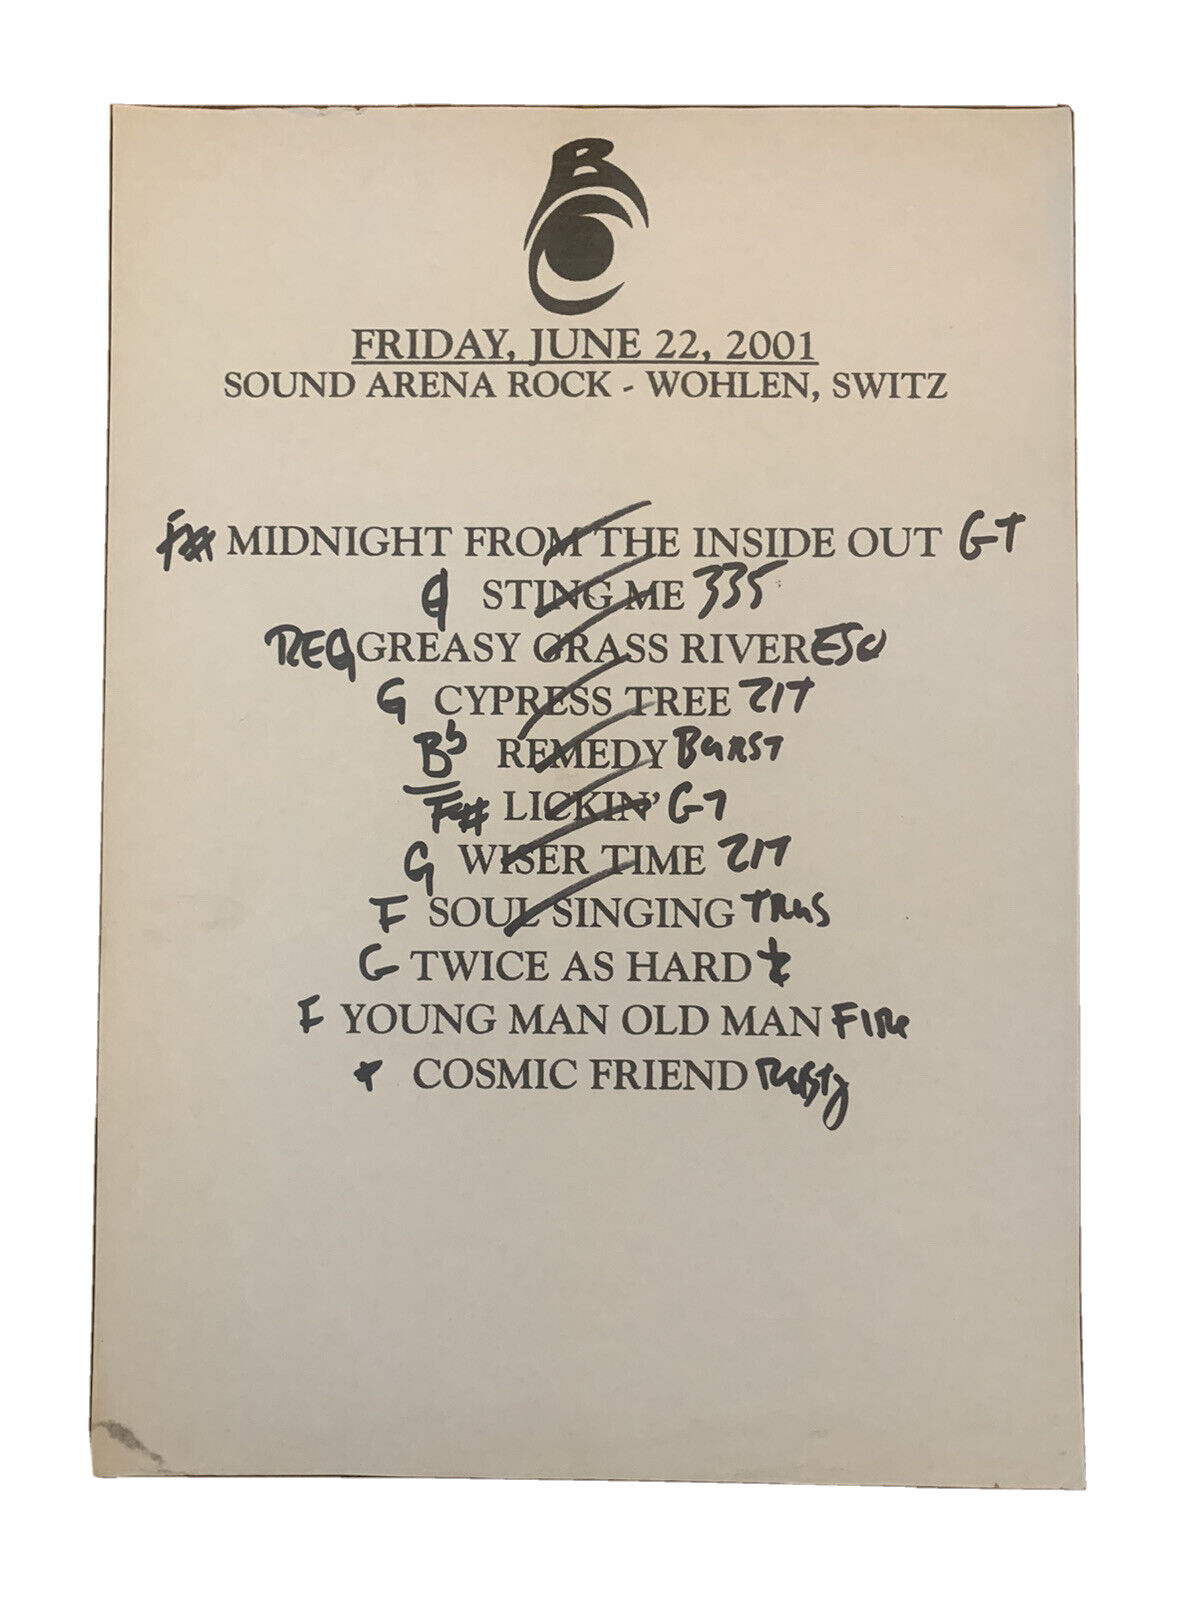 BC
FRIDAY, JUNE 22, 2001
SOUND ARENA ROCK - WOHLEN, SWITZ
F# MIDNIGHT FROM THE INSIDE OUT GT
G STING ME 335
REG GREASY GRASS RIVER ESQ
G CYPRESS TREE ZIT
Bb REMEDY BURST
F# LICKIN' GT
G WISER TIME ZIT
F SOUL SINGING TRUS
G TWICE AS HARD
F YOUNG MAN OLD MAN FIRE
COSMIC FRIEND RUSTY